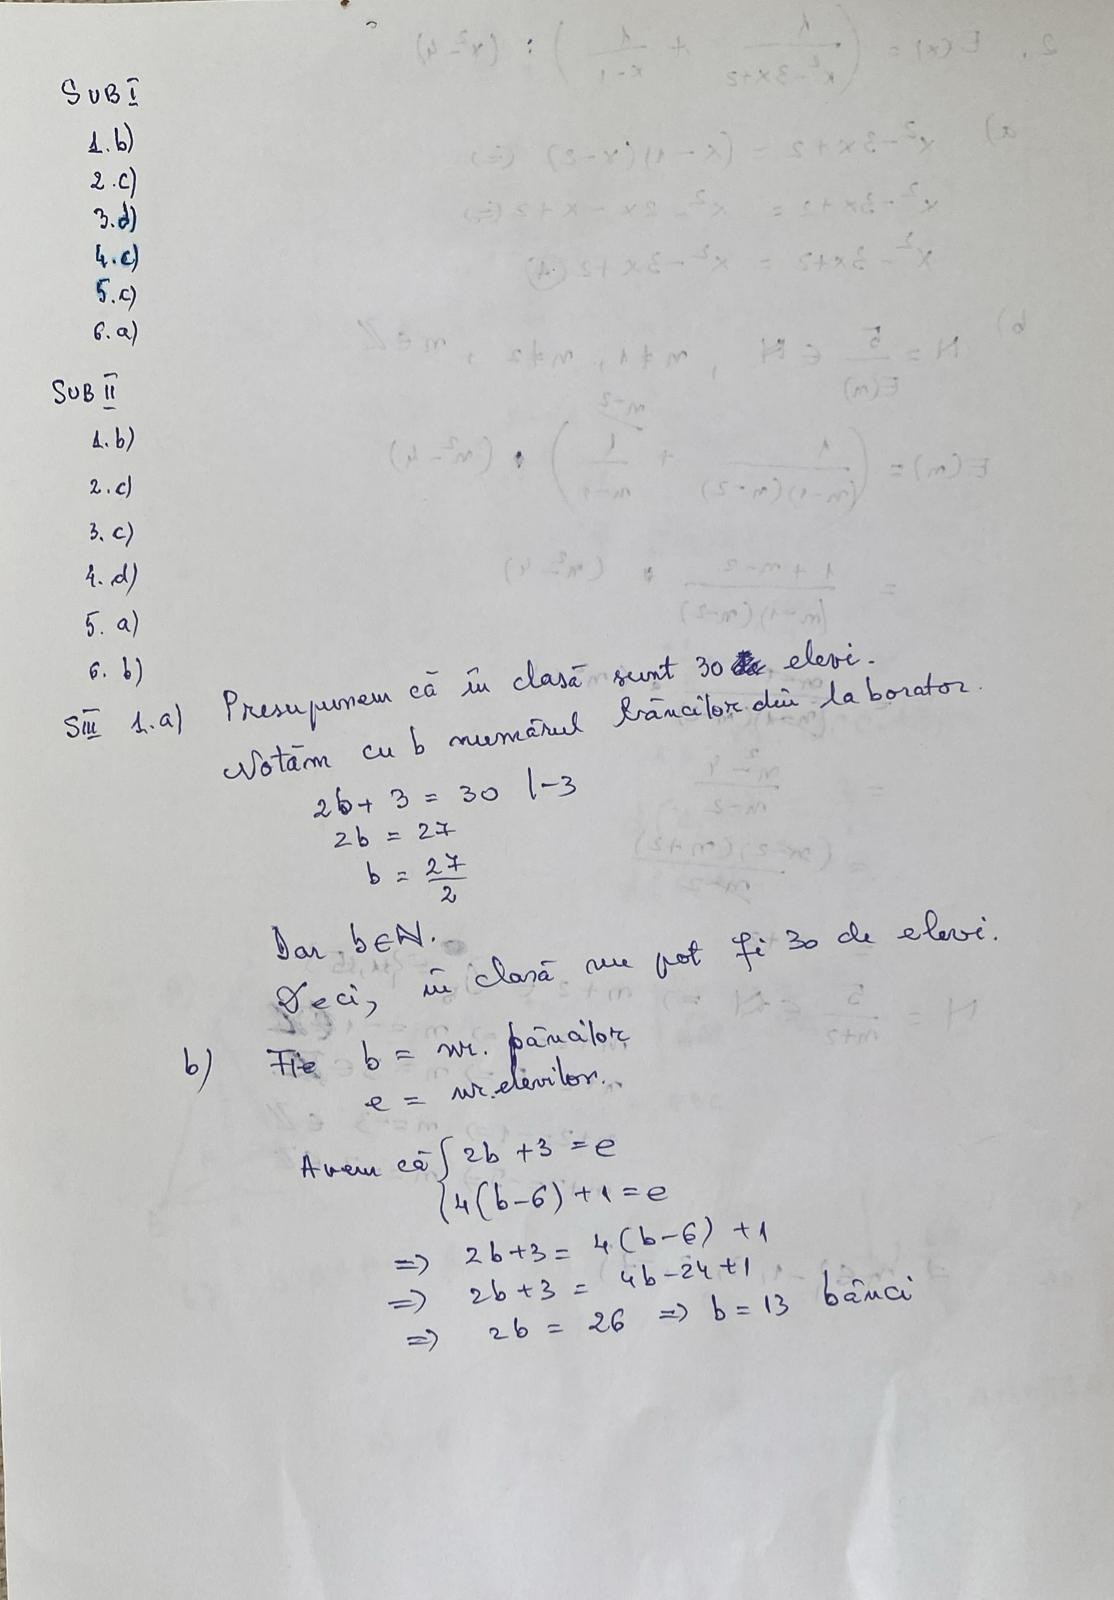 SUB I
1. b)
2. c)
3. d)
4. c)
5. c)
6. a)
SUB II
1. b)
2. c)
3. c)
4. d)
5. a)
6. b)
SIII 1. a) Presupunem că în clasă sunt 30 de elevi.
Notăm cu b numărul băncilor din laborator.
2b + 3 = 30 |-3
2b = 27
b = 27/2
Dar b∈N.
Deci, în clasă nu pot fi 30 de elevi.
b) Fie b = nr. băncilor
e = nr. elevilor.
Avem că { 2b + 3 = e
{ 4(b-6) + 1 = e
=> 2b+3 = 4(b-6) +1
=> 2b+3 = 4b-24+1
=> 2b = 26 => b = 13 bănci